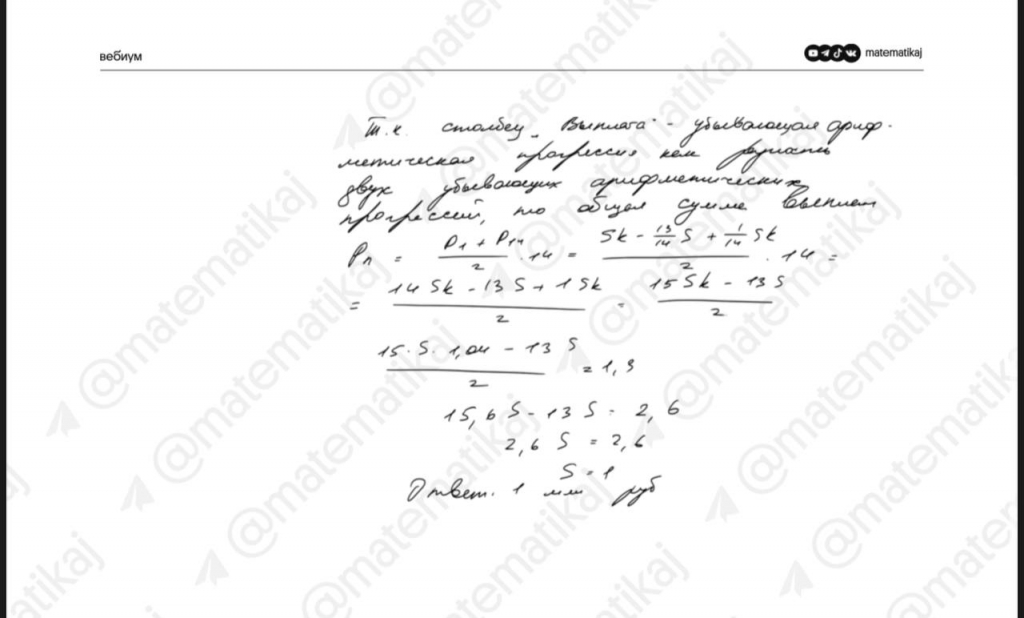 вебиум
matematikaj
Т.к. столбец „Выплата" - убывающая ариф-
метическая прогрессия как разность
двух убывающих арифметических
прогрессий, то общая сумма выплат
Pn = (P1 + P14)/2 · 14 = (Sk - 13/14 S + 1/14 Sk)/2 · 14 =
= (14Sk - 13S + 1Sk)/2 = (15Sk - 13S)/2
(15 · S · 1,04 - 13S)/2 = 1,3
15,6S - 13S = 2,6
2,6S = 2,6
S = 1
Ответ. 1 млн руб
@matematikaj